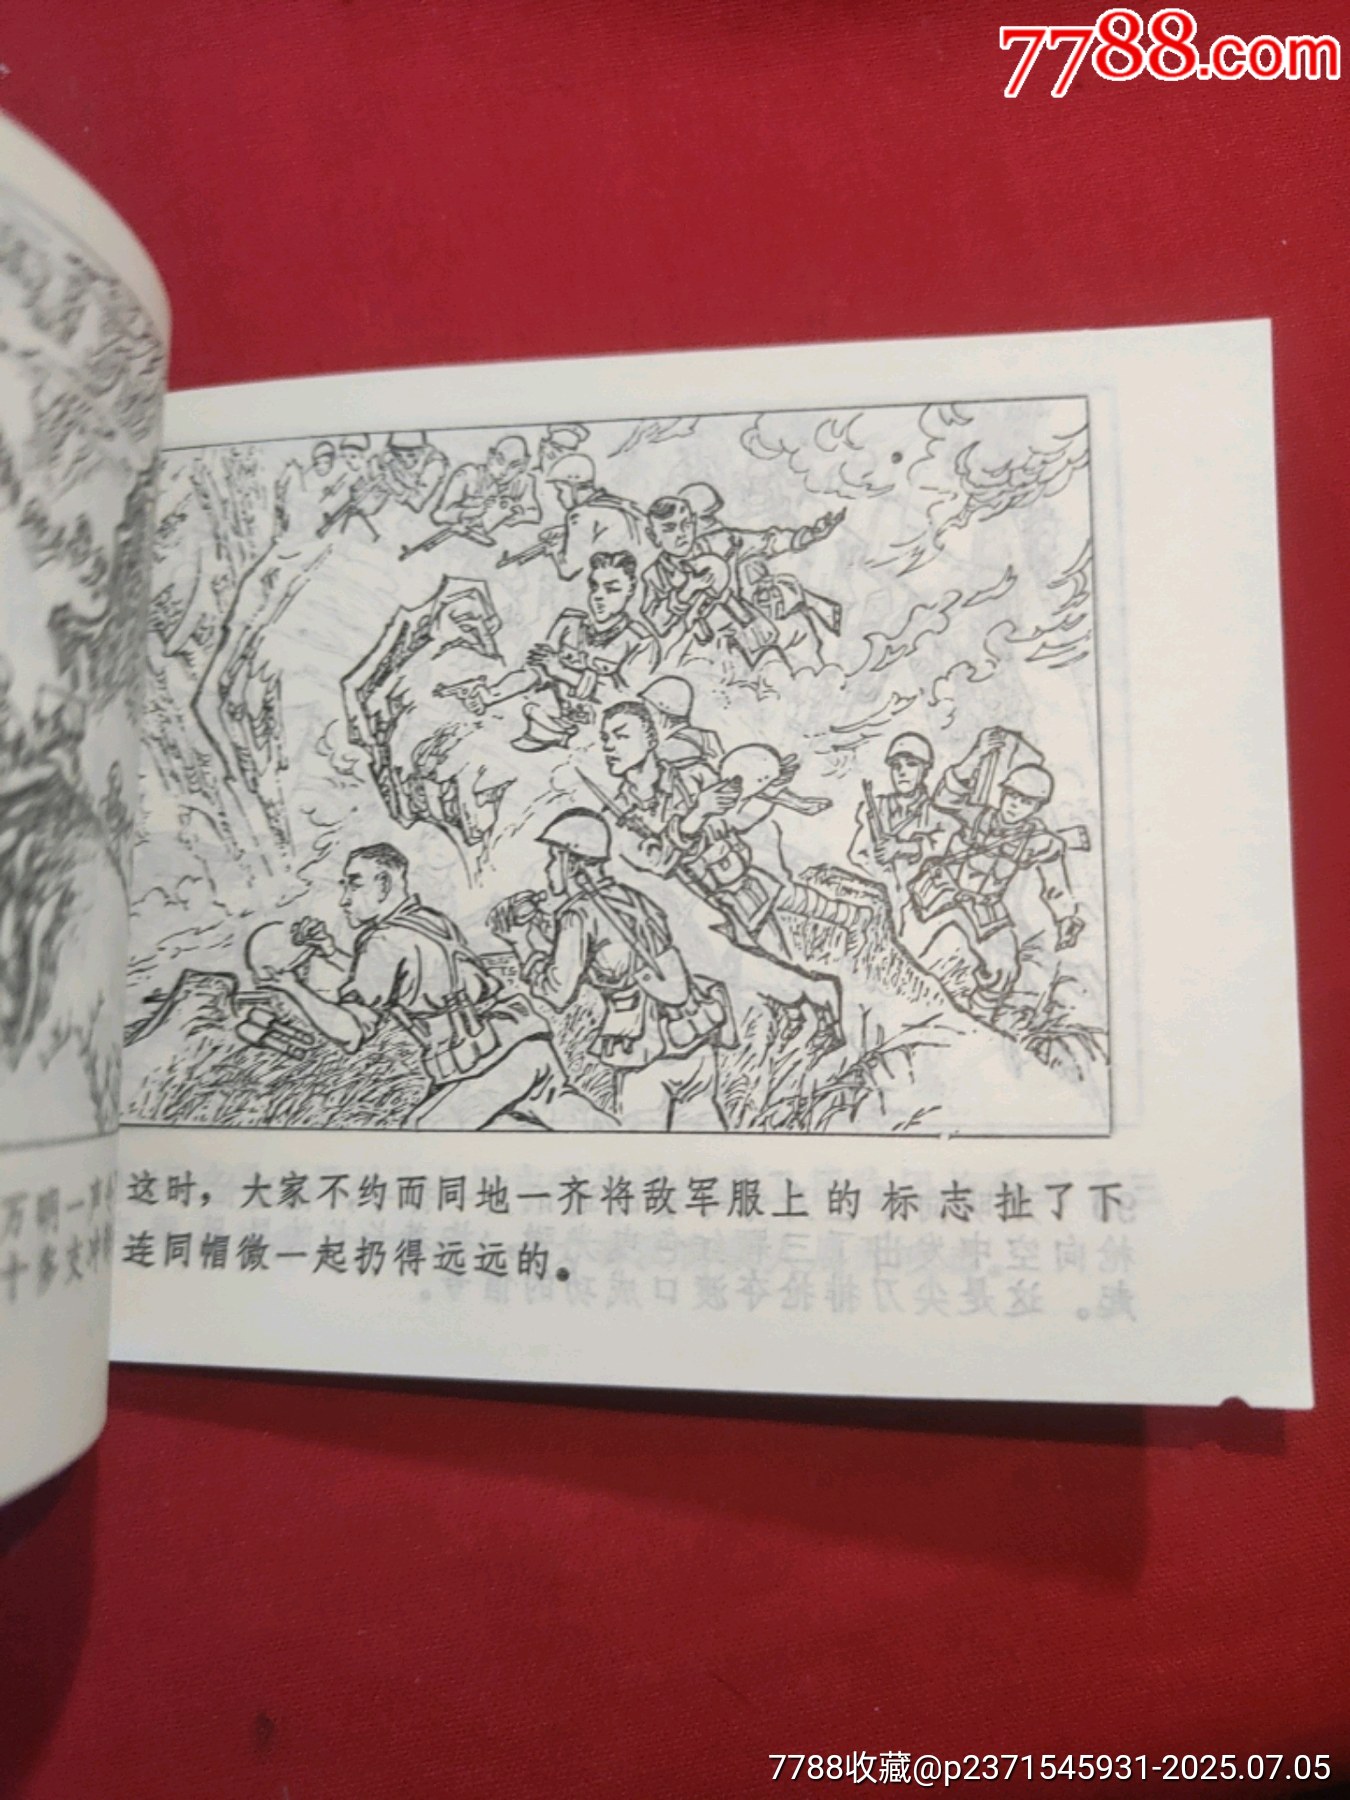 7788.com
万明一声
十多支冲
这时，大家不约而同地一齐将敌军服上的标志扯了下
连同帽徽一起扔得远远的。
7788收藏@p2371545931-2025.07.05